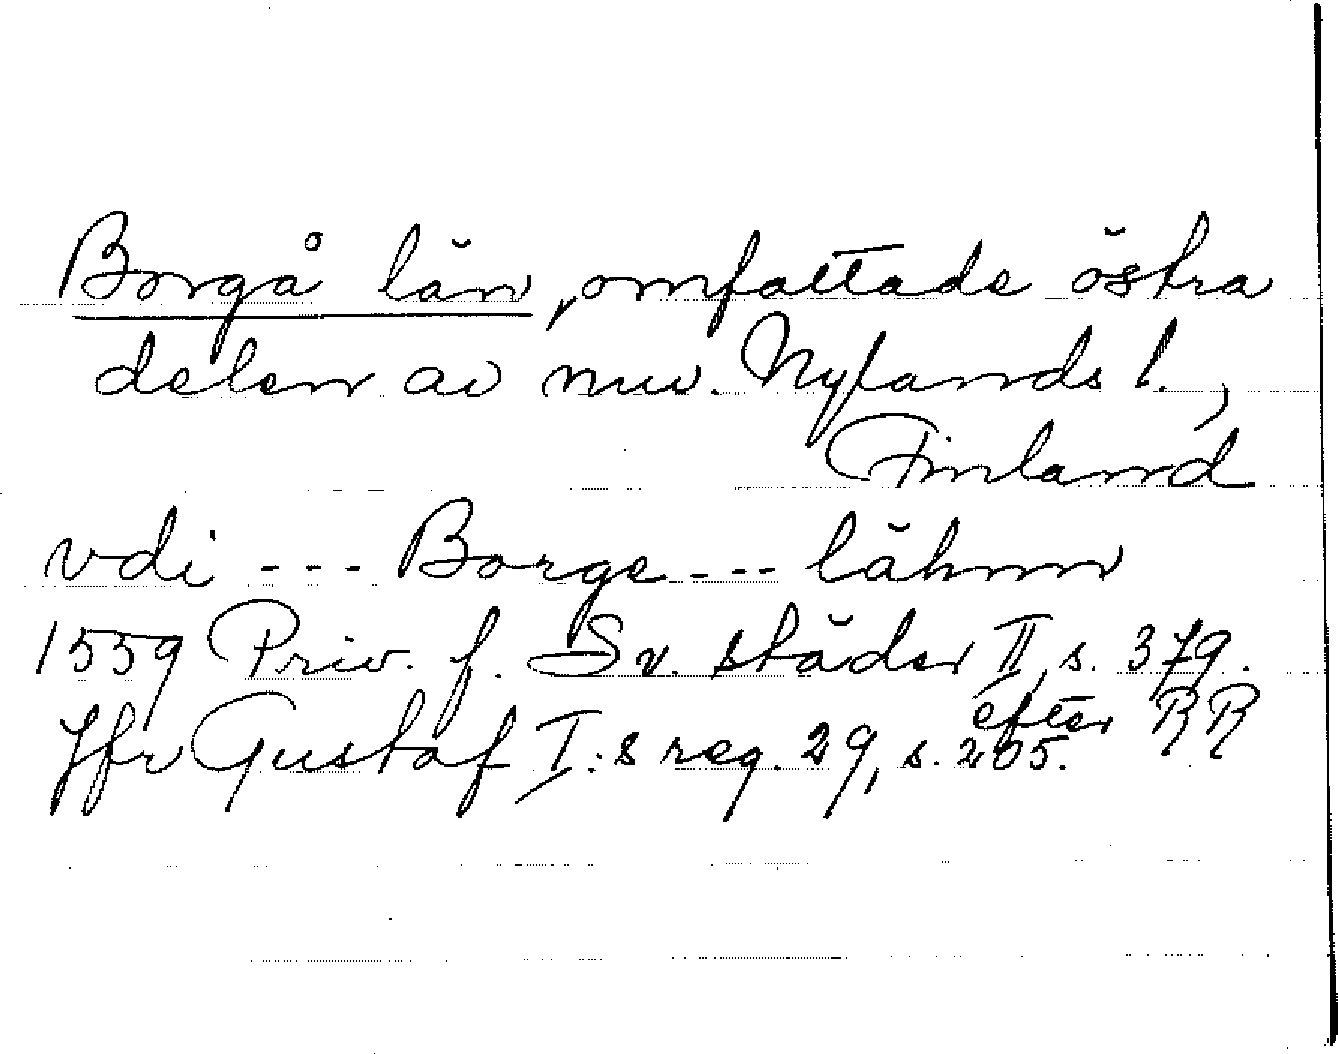 Borgå län, omfattade östra
delen av nuv. Nylands l.,
Finland
vdi --- Borge --- lähnn
1559 Priv. f. Sv. städer II, s. 379.
efter RR
Jfr Gustaf I:s reg. 29, s. 205.